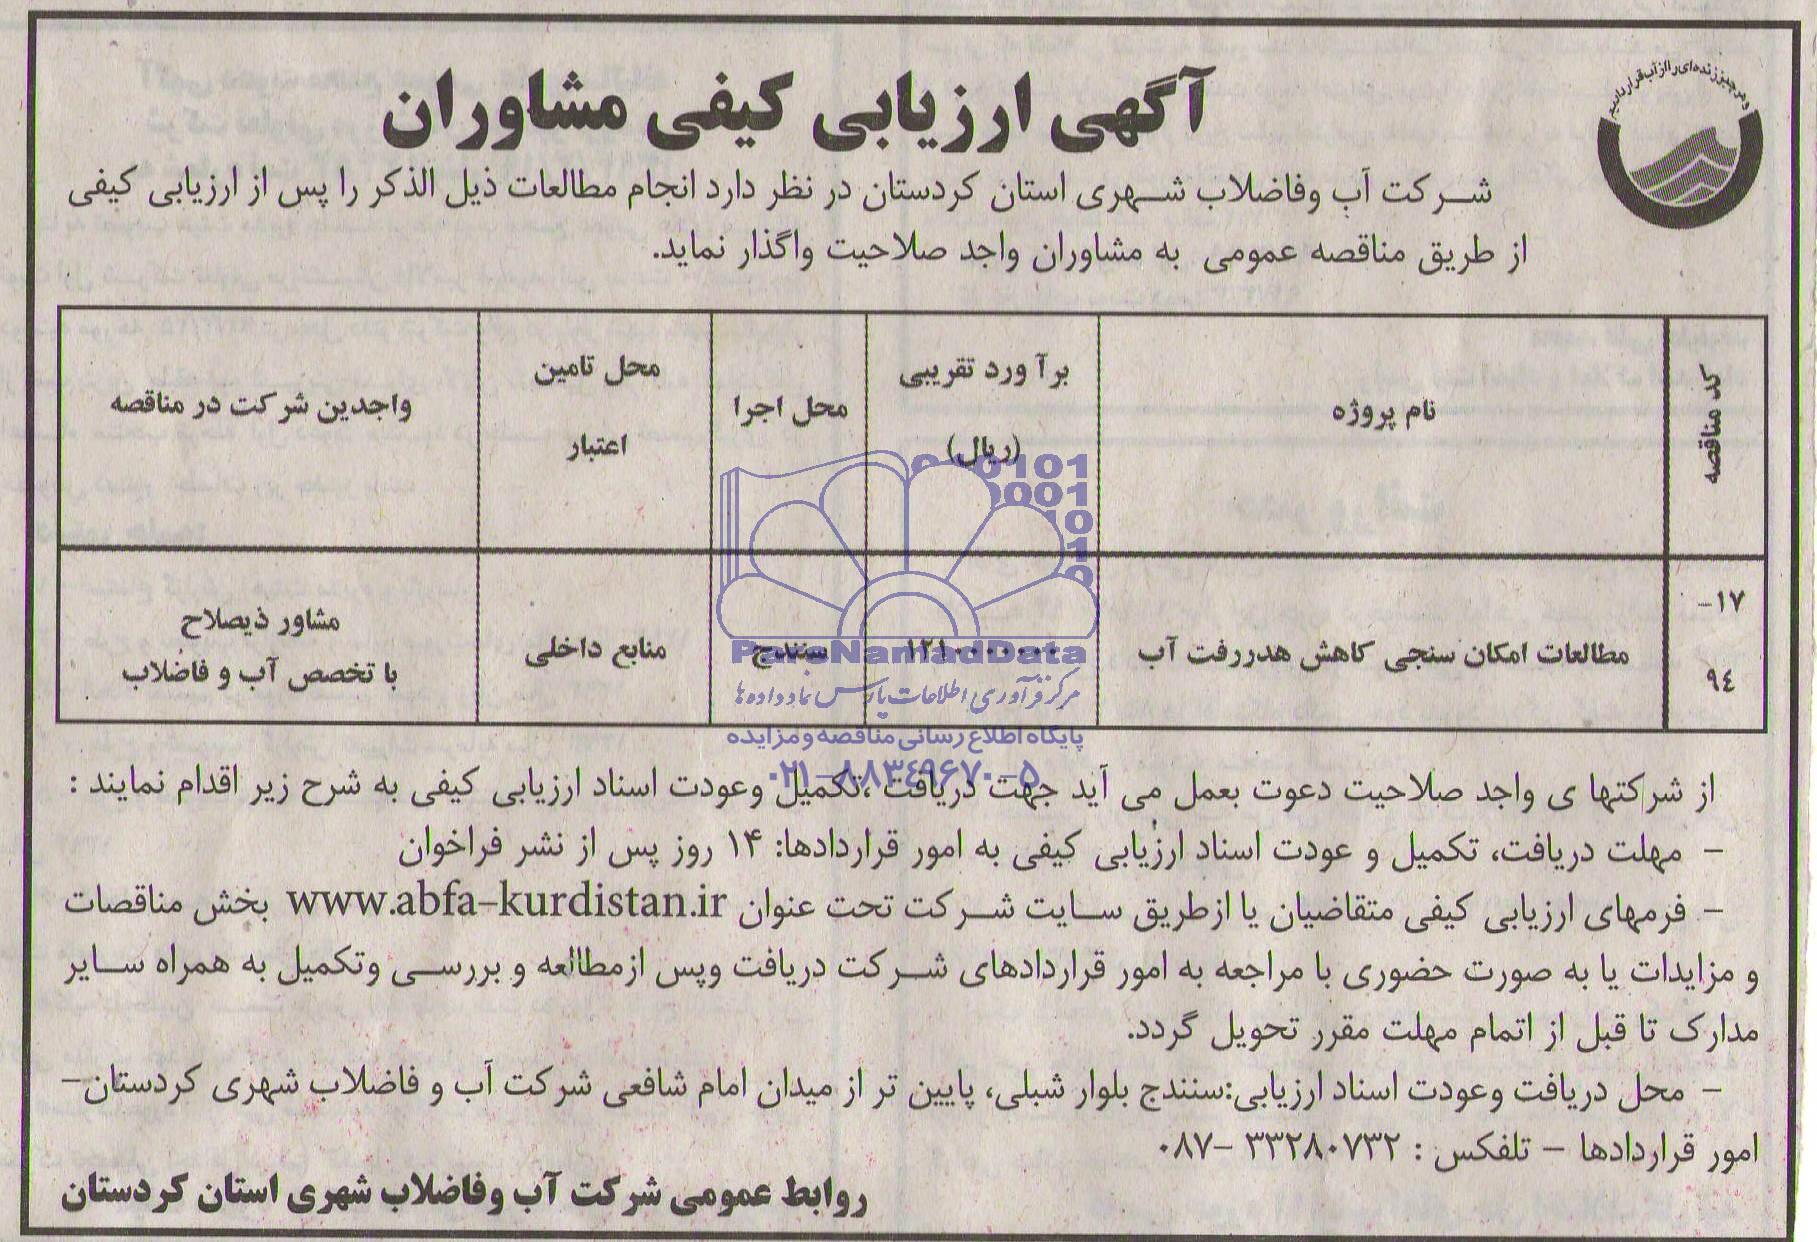 و هر چیز زنده‌ای را از آب قرار دادیم
آگهی ارزیابی کیفی مشاوران
شرکت آب وفاضلاب شهری استان کردستان در نظر دارد انجام مطالعات ذیل الذکر را پس از ارزیابی کیفی
از طریق مناقصه عمومی به مشاوران واجد صلاحیت واگذار نماید.
کد مناقصه
نام پروژه
برآ ورد تقریبی
(ریال)
محل اجرا
محل تامین
اعتبار
واجدین شرکت در مناقصه
-۱۷
۹٤
مطالعات امکان سنجی کاهش هدررفت آب
سنندج
منابع داخلی
مشاور ذیصلاح
با تخصص آب و فاضلاب
ParsNamadData
مرکز فرآوری اطلاعات پارس نماد داده ها
پایگاه اطلاع رسانی مناقصه و مزایده
۰۲۱-۸۸۳٤۹۶۷۰-۵
از شرکتها ی واجد صلاحیت دعوت بعمل می آید جهت دریافت ،تکمیل وعودت اسناد ارزیابی کیفی به شرح زیر اقدام نمایند :
- مهلت دریافت، تکمیل و عودت اسناد ارزیابی کیفی به امور قراردادها: ۱۴ روز پس از نشر فراخوان
- فرمهای ارزیابی کیفی متقاضیان یا ازطریق سایت شرکت تحت عنوان www.abfa-kurdistan.ir بخش مناقصات
و مزایدات یا به صورت حضوری با مراجعه به امور قراردادهای شرکت دریافت وپس ازمطالعه و بررسی وتکمیل به همراه سایر
مدارک تا قبل از اتمام مهلت مقرر تحویل گردد.
- محل دریافت وعودت اسناد ارزیابی:سنندج بلوار شبلی، پایین تر از میدان امام شافعی شرکت آب و فاضلاب شهری کردستان-
امور قراردادها - تلفکس : ۳۳۲۸۰۷۳۲ -۰۸۷
روابط عمومی شرکت آب وفاضلاب شهری استان کردستان